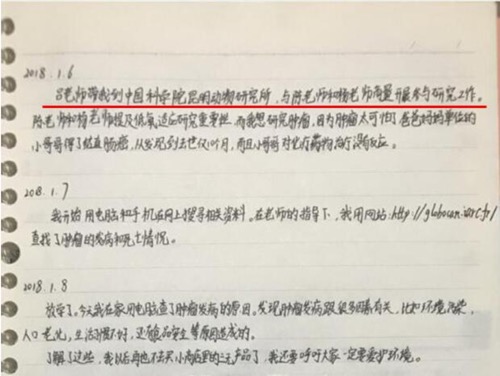 2018.1.6
吕老师带我到中国科学院昆明动物研究所,与陈老师和杨老师商量开展参与研究工作。
陈老师和杨老师提及低氧适应研究重要性。而我想研究肿瘤,因为肿瘤太可怕了。爸爸妈妈单位的
小哥哥得了结直肠癌,从发现到去世仅10个月,而且小哥哥对化疗药物治疗没有反应。
2018.1.7
我开始用电脑和手机在网上搜寻相关资料。在老师的指导下,我用网站:http://globocan.iarc.fr/
查找了肿瘤的发病和死亡情况。
2018.1.8
放学了。今天我在家用电脑查了肿瘤发病的原因。发现肿瘤发病跟很多因素有关,比如环境污染,
人口老化,生活习惯不好,还有食品安全等原因造成的。
了解了这些,我以后再也不去买小商店里的三无产品了,我还要呼吁大家一定要爱护环境。